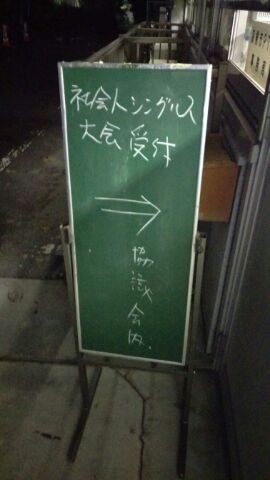 社会人シングルス
大会受付
→
協議会内